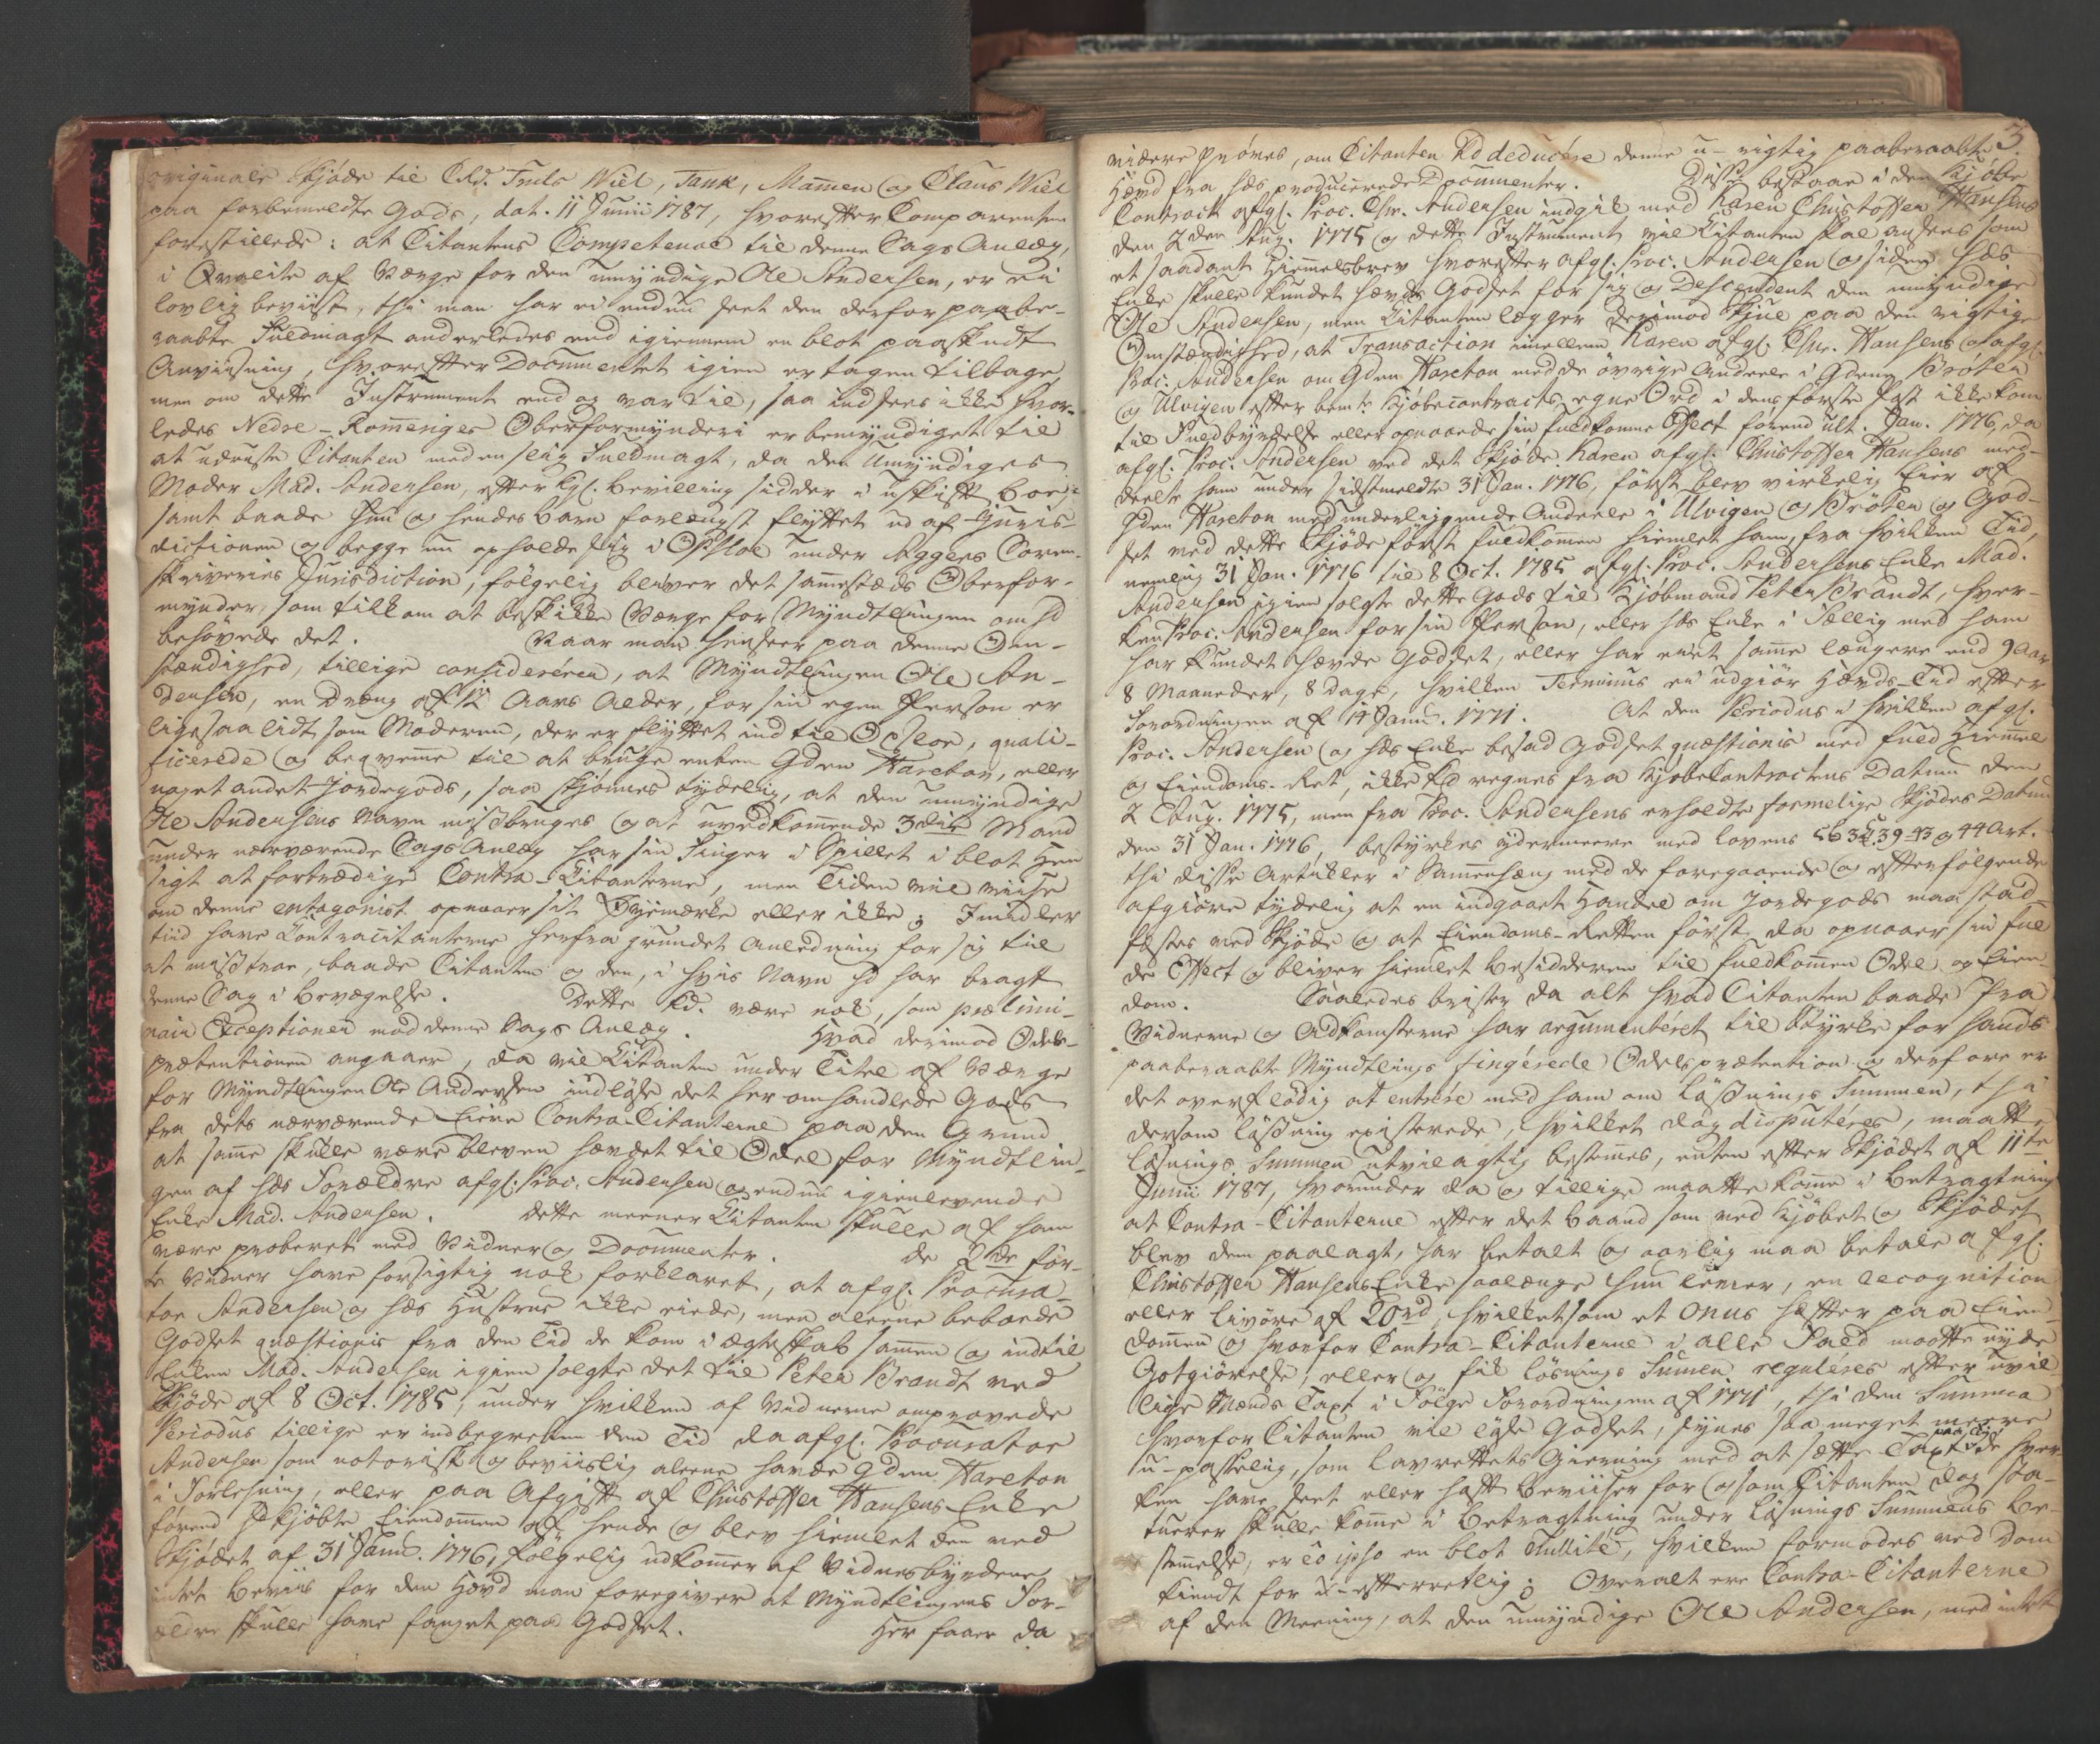 originale Skjøde til Cld. Truls Wiel, Tank, Mamen og Claus Wiel
paa forbemeldte Gods, dat. 11 Junii 1787, hvorefter Comparenten
forestillede: at Citantens Competence til denne Sags Anlæg,
i Qvalite af Værge for den umyndige Ole Andersen, er ei
lovlig beviist, thi man har ei endnu seet den derfor paabe-
raabte Fuldmagt anderledes end igiennem en blot paaskudt
Anviisning, hvorefter Documentet igien er tagen tilbage
men om dette Instrument end og var til, saa indsees ikke hvor-
ledes Nedre-Romeriges Oberformynderi er bemyndiget til
at udruste Citanten med en slig Fuldmagt, da den Umyndiges
Moder Mad. Andersen, efter Kgl. Bevilling sidder i uskift Boe;
samt baade Hun og hendes Barn forlængst flyttet ud af Juris-
dictionen og begge nu opholde sig i Opsloe under Aggers Soren-
skriveries Jurisdiction, følgelig bliver det sammestæds Oberfor-
mynder, som tilkom at beskikke Værge for Myndtlingen om hd
behøvede det. Naar man henseer paa denne Om-
stændighed, tillige considererer, at Myndtlingen Ole An-
dersen, en Dreng af 12 Aars Alder, for sin egen Person er
ligesaalidt som Moderen, der er flyttet ind til Opsloe, quali-
ficerede og beqvemme til at bruge enten Gden Hareton, eller
noget andet Jordegods, saa skjønnes tydelig, at den umyndige
Ole Andersens Navn misbruges og at uvedkommende 3die Mand
under nærværende Sags Anlæg har sin Finger i Spillet i blot Hen
sigt at fortrædige Contra-Citanterne, men Tiden vil viise
om denne entagonist opnaaer sit Øyemærke eller ikke; Imidler
tiid have Contracitanterne herfra grundet Anledning for sig til
at mistroe, baade Citanten og den, i hvis Navn hd har bragt
denne Sag i Bevægelse. Dette kd. være nok, som prælimi-
nair Exceptioner mod denne Sags Anlæg. Hvad derimod Odels-
prætentionen angaaer, da vil Citanten under Titel af Værge
for Myndtlingen Ole Andersen indløse det her omhandlede Gods
fra dets nærværende Eiere Contra-Citanterne paa den Grund
at samme skulle være bleven hævdet til Odel for Myndtlin-
gen af hds Forældre afgl. Proc. Andersen og endnu igienlevende
Enke Mad. Andersen. Dette meener Citanten skulle af ham
være proberet med Vidner og Documenter. De 2de før-
te Vidner have forsigtig nok forklaret, at afgl. Procura-
tor Andersen og hds Hustrue ikke eiede, men aleene beboede
Godset quæstionis fra den Tid de kom i ægteskab sammen og indtil
Enken Mad. Andersen igien solgte det til Peter Brandt ved
Skjøde af 8 Oct. 1785, under hvilken af Vidnerne omprovede
Periodus tillige er indbegreben den Tid da afgl. Procurator
Andersen som notorisk og beviislig aleene havde Gden Hareton
i Forlehning, eller paa Afgift af Christoffer Hansens Enke
førend hd kjøbte Eiendommen af hende og blev hiemlet den ved
Skjødet af 31 Janu. 1776, følgelig udkommer af Vidnesbyrdene
intet Beviis for den Hævd man foregiver at Myndtlingens For-
ældre skulle have fanget paa Godset. Her faaer da
3.
videre prøves, om Citanten kd deducére denne u-rigtig paaberaabte
Hævd fra hds producerede Documenter. Disse bestaaer i den Kjøbe
Contract afgl. Proc. Chr. Andersen indgik med Karen Christoffer Hansens
den 2den Aug. 1775 og dette Instrument vil Citanten skal ansees som
et saadant Hiemmelsbrev hvorefter afgl. Proc. Andersen og siden hds
Enke skulle kundet hævde Godset for sig og Descendent den umyndige
Ole Andersen, men Citanten lægger derimod Skjul paa den vigtige
Omstændighed, at Transaction imellem Karen afgl. Chr. Hansens og afgl.
Proc. Andersen om Gden Hareton med de øvrige Andeele i Gdene Brøten
og Ulvigen efter bemte Kjøbecontracts egne Ord i dens første Post ikke kom
til Fuldbyrdelse eller opnaaede sin fuldkomne Effect førend ult. Jan. 1776, da
afgl. Proc. Andersen ved det Skjøde Karen afgl. Christoffer Hansens med-
deelte ham under sidstmeldte 31 Jan. 1776, først blev virkelig Eier af
Gden Hareton med underliggende Andeele i Ulvigen og Brøten og God-
set ved dette Skjøde først fuldkommen hiemlet ham, fra hvilken Tid,
nemlig 31 Jan. 1776 til 8 Oct. 1785 afgl. Proc. Andersens Enke Mad.
Andersen igien solgte dette Gods til Kjøbmand Peter Brandt, hver-
ken Proc. Andersen for sin Person, eller hds Enke i Fællig med ham
har kundet hævde Godset, eller har eiet samme længere end 9 Aar
8 Maaneder, 8 Dage, hvilken Terminus ei udgiør Hævds-Tid efter
Forordningen af 14 Janu. 1771. At den Periodus i hvilken afgl.
Proc. Andersen og hds Enke besad Godset quæstionis med fuld Hiemmel
og Eiendoms-Ret, ikke kd regnes fra Kjøbecontractens Datum den
2 Aug. 1775, men fra Proc. Andersens erholdte formelige Skjødes Datum
den 31 Jan. 1776, bestyrkes ydermeere med Lovens 5B 3C. 39-43 og 44 Art.
thi disse Artikler i Sammenhæng med de foregaaende og efterfølgende
afgiøre tydelig at en indgaaet Handel om Jordegods maa stad-
fæstes med Skjøde og at Eiendoms-Retten første da opnaaer sin ful
de Effect og bliver hiemlet Besidderen til fuldkommen Odel og Eien-
dom. Saaledes brister da alt hvad Citanten baade fra
Vidnerne og Adkomsterne har argumentéret til Styrke for hands
paaberaabte Myndtlings fingérede Odelsprætention og derfore er
det overflødig at entrére med ham om Løsnings Summen, thi
dersom løsning existerede, hvilket dog disputéres, maatte
løsnings Summen utvilagtig bestemmes, enten efter Skjødet af 11te
Junii 1787, hvorunder da og tillige maatte komme i Betragtning
at Contra-Citanterne efter det Baand som ved Kjøbet og Skjødet
blev dem paalagt, har betalt og aarlig maa betale afgl.
Christoffer Hansens Enke saalænge hun lever, en recognition
eller livøre af 20rd, hvilket som et onus hefter paa Eien
dommen og hvorfor Contra-Citanterne i alle Fald maatte nyde
Gotgiørelse, eller og fik løsnings Summen reguléres efter uvil-
lige Mænds Taxt i Følge Forordningen af 1771, thi den Summa
hvorfor Citanten vil løse Godset, synes saa meget meere
u-passelig, som Lavrettets Gierning med at sætte Taxt paa Gods hver
ken have seet eller haft Beviiser for og som Citanten dog paa-
tuerer skulle komme i Betragtning under løsnings Summens be-
stemmelse, er eo ipso en blot Nullité, hvilken formodes ved Dom
kiendt for u-efterrettelig; Overalt ere Contra-Citanterne
af den Meening, at den umyndige Ole Andersen, med intet